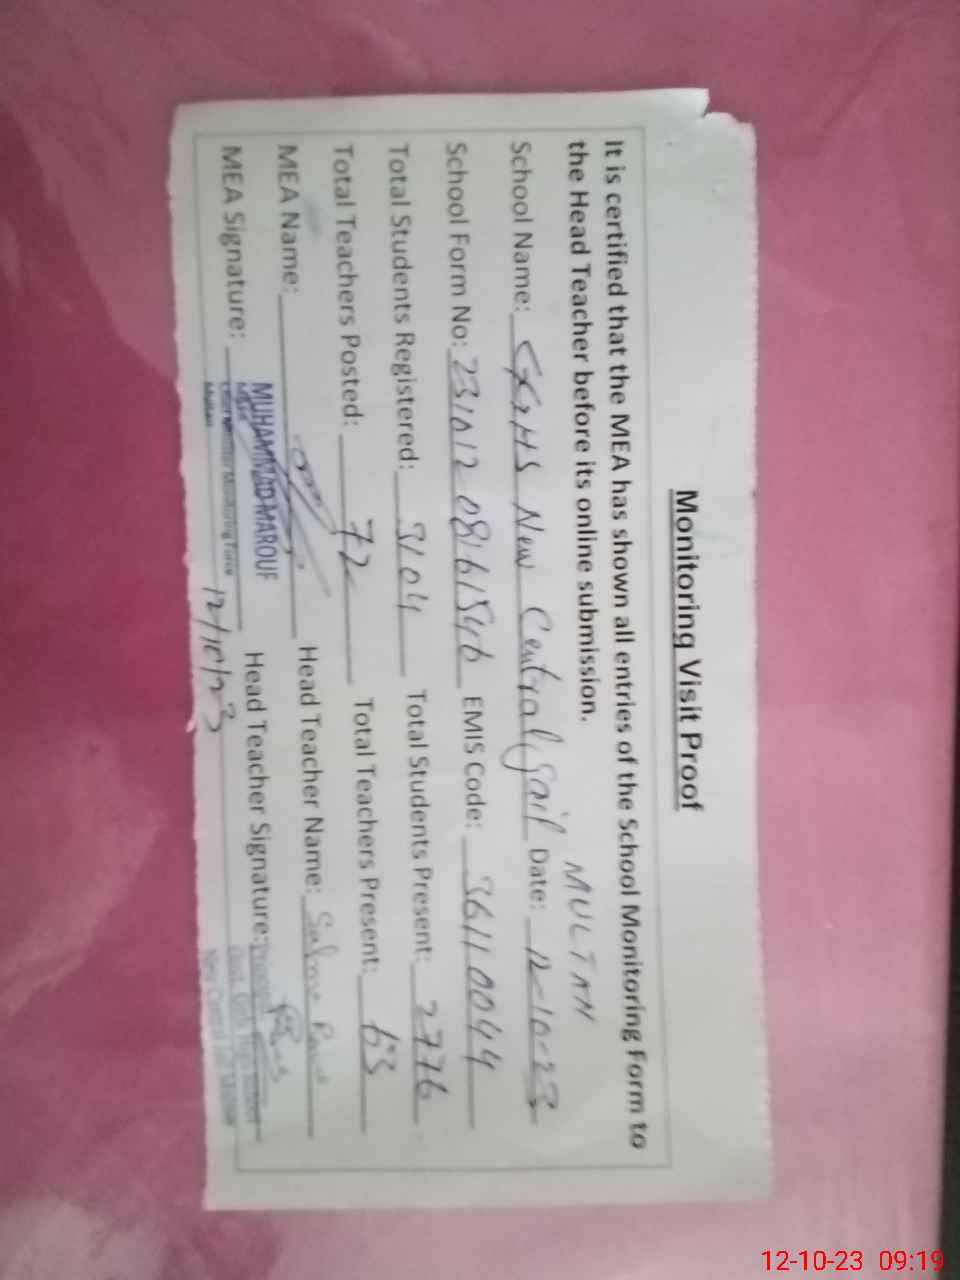 Monitoring Visit Proof
It is certified that the MEA has shown all entries of the School Monitoring Form to
the Head Teacher before its online submission.
MULTAN
School Name: GGHS New Central Jail Date: 12-10-23
School Form No: EMIS Code: 36110044
Total Students Registered: 3104 Total Students Present: 2776
Total Teachers Posted: 72 Total Teachers Present: 63
MEA Name: Head Teacher Name: Salma
MUHAMMAD MAROUF
MEA Signature: Head Teacher Signature:
Monitoring Force
Multan
12/10/23
12-10-23 09:19